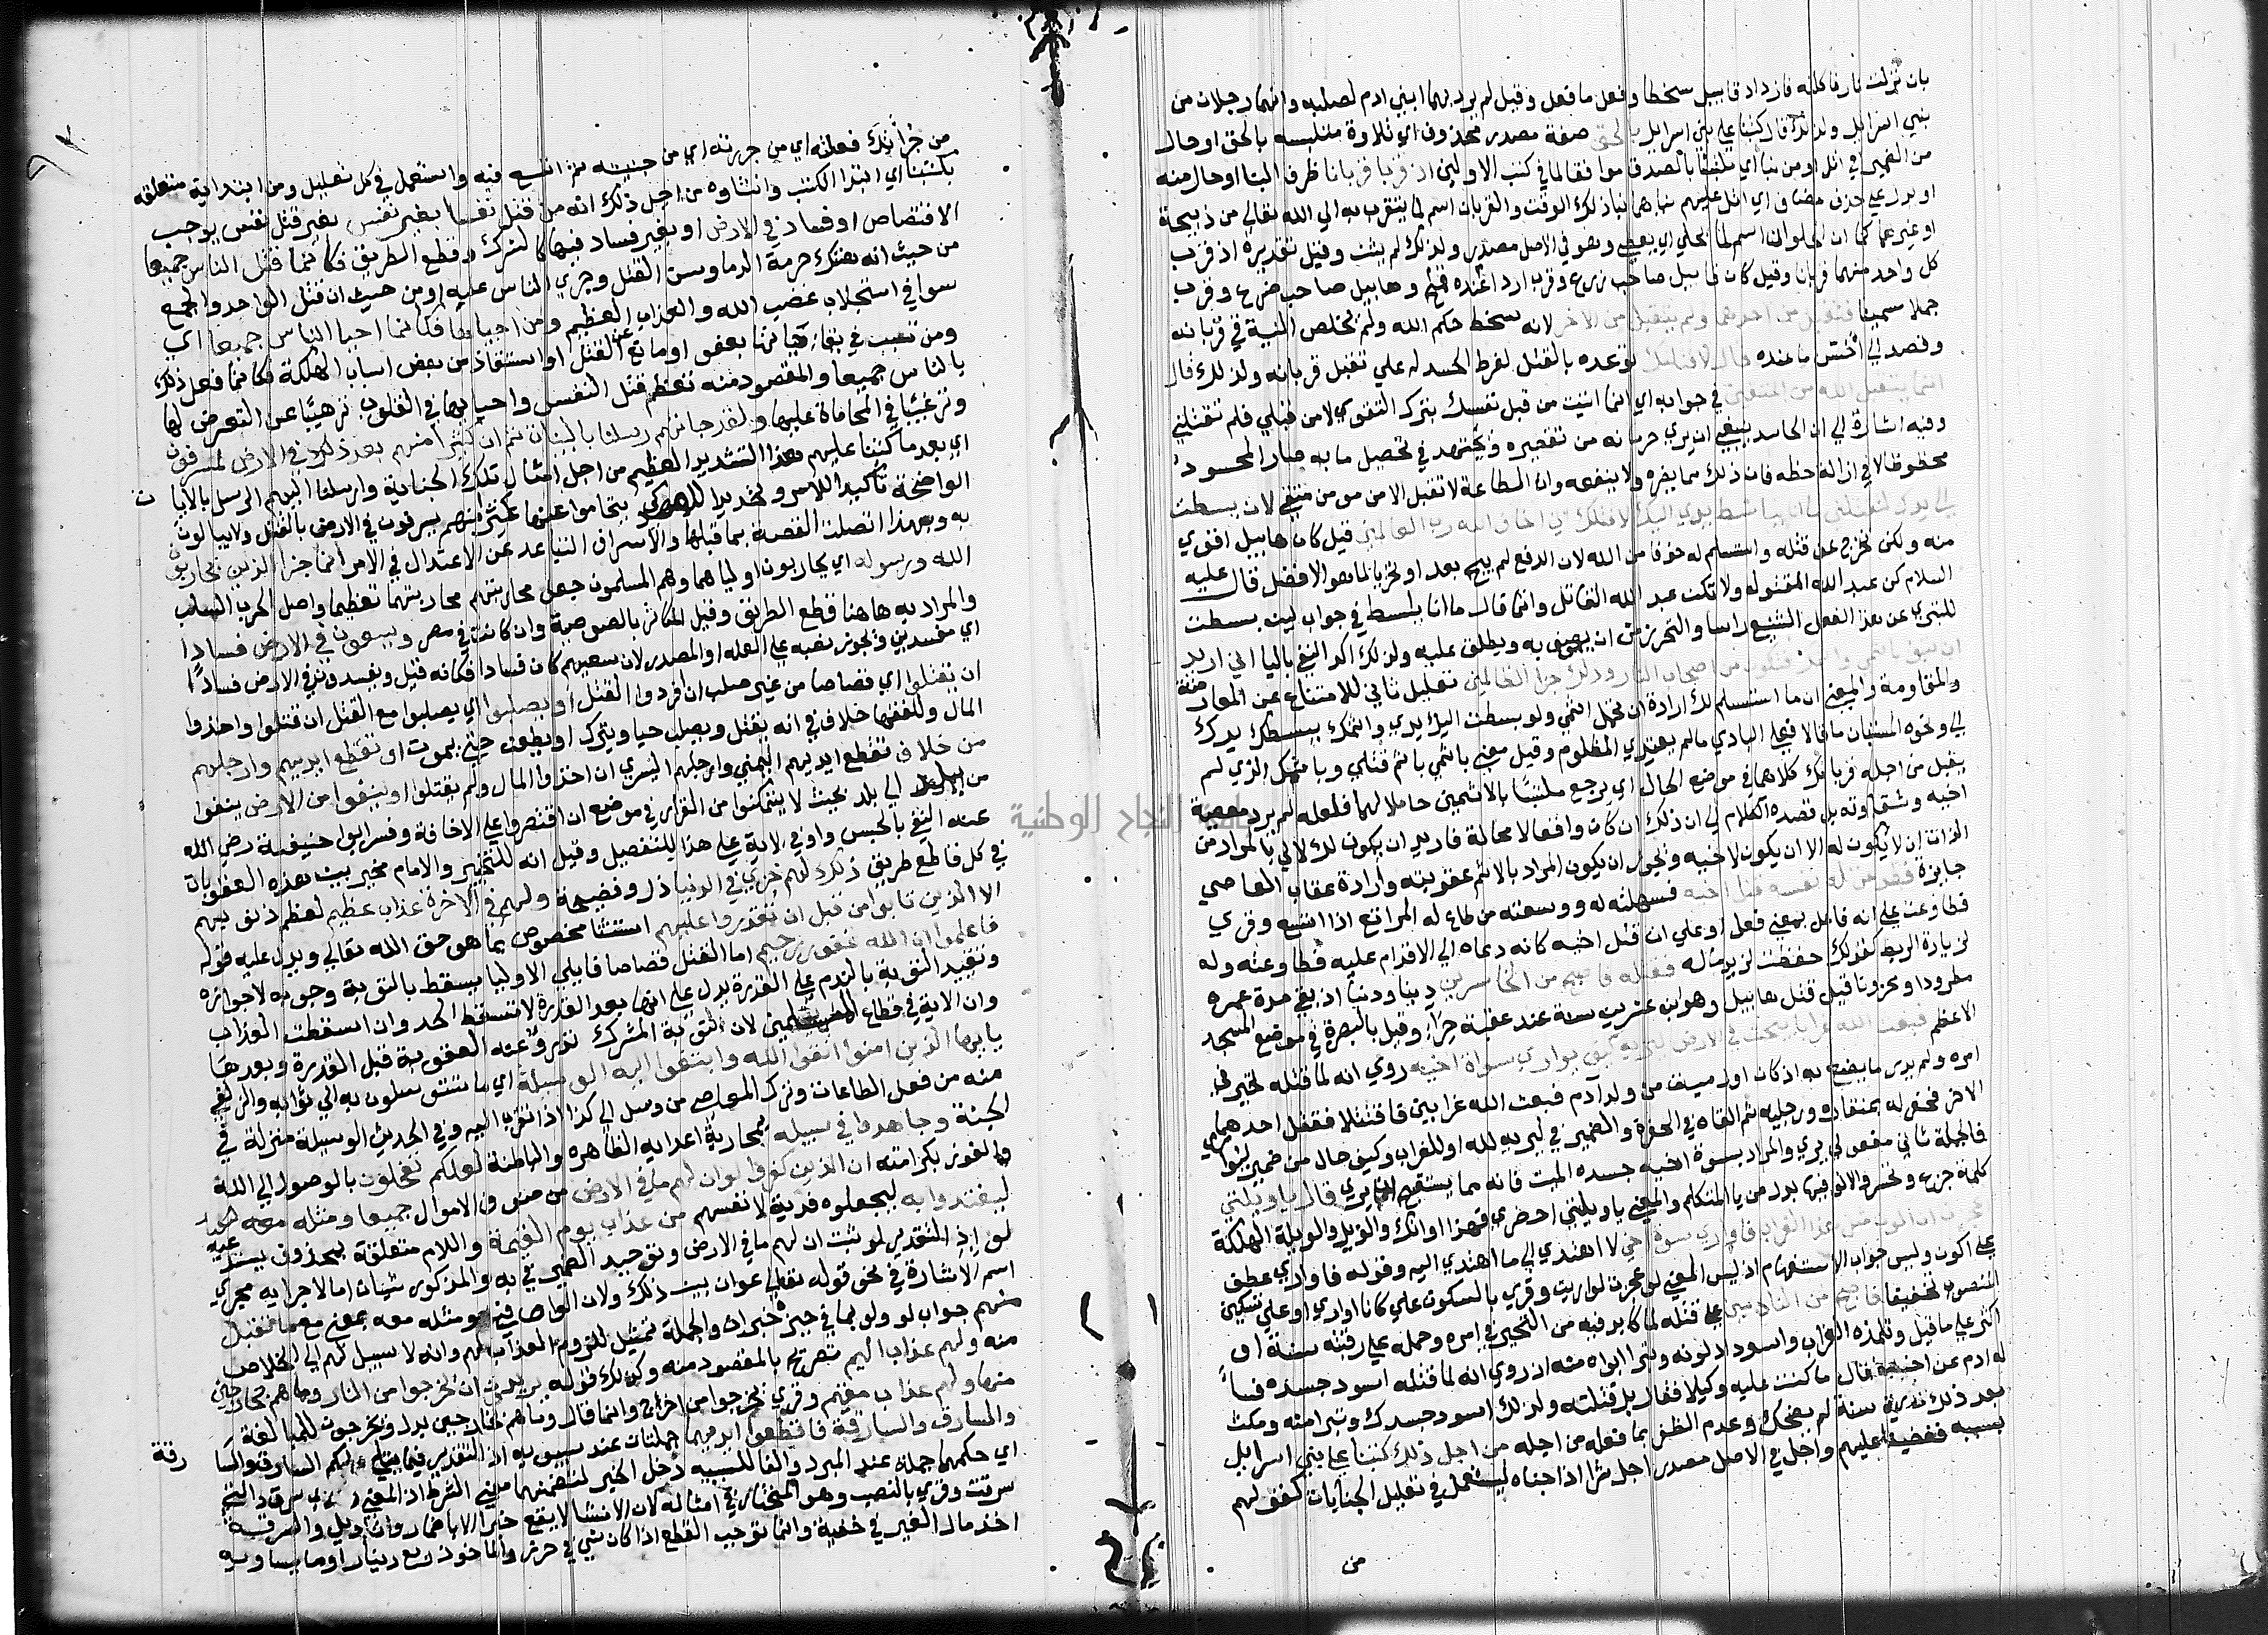 بان نزلت نار فاكلته فازداد قابيل سخطا وفعل ما فعل وقيل لم يرد بهما ابني ادم لصلبه وانهما رجلان من
بني اسرائيل ولذلك قال كتبنا علي بني اسرايل بالحق صفة مصدر محذوف اي تلاوة متلبسة بالحق او حال
من الضمير في اتل او من نبا اي ملتبسا بالصدق موافقا لما في كتب الاولين اذ قربا قربانا ظرف النبا او حال منه
او بدل علي حذف مضاف اي اتل عليهم نباهما نبا ذلك الوقت والقربان اسم لما يتقرب به الي الله تعالي من ذبيحة
او غيرها كما ان الحلوان اسم لما يحلي اي يعطي وهو في الاصل مصدر ولذلك لم يثن وقيل تقديره اذ قرب
كل واحد منهما قربانا وقيل كان قابيل صاحب زرع وقرب اردا قمح عنده وهابيل صاحب ضرع وقرب
جملا سمينا فتقبل من احدهما ولم يتقبل من الاخر لانه سخط حكم الله ولم يخلص النية في قربانه
وقصد الي اخس ما عنده قال لاقتلنك توعده بالقتل لفرط الحسد له علي تقبل قربانه ولذلك قال
انما يتقبل الله من المتقين في جوابه اي انما اتيت من قبل نفسك بترك التقوي لا من قبلي فلم تقتلني
وفيه اشارة الي ان الحاسد ينبغي ان يري حرمانه من تقصيره ويجتهد في تحصيل ما به صار المحسود
محظوظا لا في ازالة حظه فان ذلك مما يضره ولا ينفعه وان الطاعة لا تقبل الا من مومن متقي لان بسطت
الي يدك لتقتلني ما انا بباسط يدي اليك لاقتلك اني اخاف الله رب العالمين قيل كان هابيل اقوي
منه ولكن تحرج عن قتله واستسلم له خوفا من الله لان الدفع لم يبح بعد او تحريا لما هو الافضل قال عليه
السلام كن عبد الله المقتول ولا تكن عبد الله القاتل وانما قال ما انا بباسط في جواب لين بسطت
للتبري عن هذا الفعل الشنيع راسا والتحرز من ان يوصف به ويطلق عليه ولذلك اكد النفي بالبا اني اريد
ان تبوا باثمي واثمك فتكون من اصحاب النار وذلك جزا الظالمين تعليل ثاني للامتناع عن المعارضة
والمقاومة والمعني ان ما استسلم لك ارادة ان تحمل اثمي ولو بسطت اليك يدي واثمك ببسطك يدك
الي ونحوه المستبان ما قالا فعلي البادي ما لم يعتدي المظلوم وقيل معني باثمي باثم قتلي وباثمك الذي لم
يقبل من اجله قربانك كلاهما في موضع الحال اي يرجع ملتبسا بالاثمين حاملا لهما فلعله لم يرد معصية
اخيه وشقاوته بل قصده الكلام الي ان ذلك ان كان واقعا لا محالة فاريد ان يكون لك لا لي بالمراد من
الذات ان لا يكون له الا ان يكون لاخيه ويجوز ان يكون المراد بالاثم عقوبته وارادة عقاب العاصي
جايزة فطوعت له نفسه قتل اخيه فسهلته له ووسعته من طاع له المراتع اذا اتسع وقري
فطاوعت علي انه فاعل بمعني فعل او علي ان قتل اخيه كانه دعاه الي الاقدام عليه فطاوعته وله
لزيادة الربط كقولك حفظت لزيد ماله فقتله فاصبح من الخاسرين دينا ودنيا اذ بقي مدة عمره
مطرودا ومحزونا قيل قتل هابيل وهو ابن عشرين سنة عند عقبة حراء وقيل بالبصرة في موضع المسجد
الاعظم فبعث الله غرابا يبحث في الارض ليريه كيف يواري سواة اخيه روي انه لما قتله تحير في
امره ولم يدر ما يصنع به اذ كان اول ميت من ولد آدم فبعث الله غرابين فاقتتلا فقتل احدهما
الاخر فحفر له بمنقاره ورجليه ثم القاه في الحفرة والضمير في ليريه لله او للغراب وكيف حال من ضمير يواري
فالجملة ثاني مفعولي يري والمراد بسوة اخيه جسده الميت فانه مما يستقبح ان يري قال ياويلتي
كلمة جزع وتحسر والالف فيها بدل من يا المتكلم والمعني ياويلتي احضري فهذا اوانك والويل والويلة الهلكة
اعجزت ان اكون مثل هذا الغراب فاواري سوة اخي لا اهتدي الي ما اهتدي اليه وقوله فاواري عطف
علي اكون وليس جواب الاستفهام اذ ليس المعني لو عجزت لواريت وقري بالسكون علي فانا اواري او علي تسكين
المنصوب تخفيفا فاصبح من النادمين علي قتله لما كابد فيه من التحير في امره وحمله علي رقبته سنة او
اكثر علي ما قيل وتلمذه الغراب واسوداد لونه وتبرا ابواه منه اذ روي انه لما قتله اسود جسده فسا
له ادم عن اخيه فقال ما كنت عليه وكيلا فقال بل قتلته ولذلك اسود جسدك وتبرا منه ومكث
بعد ذلك ماية سنة لم يضحك وعدم الظفر بما فعله من اجله من اجل ذلك كتبنا علي بني اسرايل
بسببه قضينا عليهم واجل في الاصل مصدر اجل شرا اذا جناه استعمل في تعليل الجنايات كقولهم
من
من جراك فعلته اي من جررته اي من جنيته ثم اتسع فيه واستعمل في كل تعليل ومن ابتداية متعلقة
بكتبنا اي ابتدا الكتب وانشاوه من اجل ذلك انه من قتل نفسا بغير نفس بغير قتل نفس يوجب
الاقتصاص او فساد في الارض او بغير فساد فيها كالشرك وقطع الطريق فكانما قتل الناس جميعا
من حيث انه هتك حرمة الدما وسن القتل وجري الناس عليه او من حيث ان قتل الواحد والجمع
سوا في استجلاب غضب الله والعذاب العظيم ومن احياها فكانما احيا الناس جميعا اي
ومن تسبب في بقاء حياتها بعفو او مانع عن القتل او استنقاذ من بعض اسباب الهلكة فكانما فعل ذلك
بالناس جميعا والمقصود منه تعظيم قتل النفس واحيايها في القلوب ترهيبا عن التعرض لها
وترغيبا في المحاماة عليها ولقد جاتهم رسلنا بالبينات ثم ان كثيرا منهم بعد ذلك في الارض لمسرفون
اي بعد ما كتبنا عليهم هذا التشديد العظيم من اجل امثال تلك الجناية وارسلنا اليهم الرسل بالايا ت
الواضحة تاكيدا للامر وتجديدا للعهد كي يتحاموا عنها كثير منهم يسرفون في الارض بالقتل ولا يبالون
به وبهذا اتصلت القصة بما قبلها والاسراف التباعد عن الاعتدال في الامر انما جزا الذين يحاربون
الله ورسوله اي يحاربون اولياهما وهم المسلمون جعل محاربتهم محاربتهما تعظيما واصل الحرب السلب
والمراد به هاهنا قطع الطريق وقيل المكاثر بالصوصية وان كانت في مصر ويسعون في الارض فسادا
اي مفسدين ويجوز نصبه علي العله او المصدر لان سعيهم كان فسادا فكانه قيل ويفسدون في الارض فسادا
ان يقتلوا اي قصاصا من غير صلب ان افردوا القتل او يصلبوا اي يصلبوا مع القتل ان قتلوا واخذوا
المال وللفقها خلاف في انه يقتل ويصلب حيا ويترك او يطعن حتي يموت او تقطع ايديهم وارجلهم
من خلاف تقطع ايديهم اليمني وارجلهم اليسري ان اخذوا المال ولم يقتلوا او ينفوا من الارض ينفوا
من بلد الي بلد بحيث لا يتمكنوا من القرار في موضع ان اقتصروا علي الاخافة وفسر ابو حنيفة رضي الله
عنه النفي بالحبس واو في الاية علي هذا للتفصيل وقيل انه للتخيير والامام مخير بين هذه العقوبات
في كل قاطع طريق ذلك لهم خزي في الدنيا ذل وفضيحة ولهم في الاخرة عذاب عظيم لعظم ذنوبهم
الا الذين تابوا من قبل ان تقدروا عليهم استثنا مخصوص بما هو حق الله تعالي ويدل عليه قوله
فاعلموا ان الله غفور رحيم اما القتل قصاصا فايلي الاوليا يسقط بالتوبة وجوبه لا جوازه
وتقييد التوبة بالتقدم علي القدرة يدل علي انها بعد القدرة لا تسقط الحد وان اسقطت العذاب
وان الاية في قطاع المسلمين لان توبة المشرك تدرؤ عنه العقوبة قبل القدرة وبعدها
يايها الذين امنوا اتقوا الله وابتغوا اليه الوسيلة اي ما تتوسلون به الي ثوابه والزلفي
منه من فعل الطاعات وترك المعاصي من وسل الي كذا اذا تقرب اليه وفي الحديث الوسيلة منزلة في
الجنة وجاهدوا في سبيله بمحاربة اعدايه الظاهره والباطنة لعلكم تفلحون بالوصول الي الله
والفوز بكرامته ان الذين كفروا لو ان لهم ما في الارض من صنوف الاموال جميعا ومثله معه
ليفتدوا به ليجعلوه فدية لانفسهم من عذاب يوم القيمة واللام متعلقة بمحذوف يستدعيه
لو اذ التقدير لو ثبت ان لهم ما في الارض وتوحيد الضمير في به والمذكور شيئان اما لاجرايه مجري
اسم الاشارة في نحو قوله تعالي عوان بين ذلك ولان الواو في ومثله معه بمعني مع ما تقبل
منهم جواب لو ولو بما في حيزه خبر ان والجملة تمثيل للزوم العذاب لهم وانه لا سبيل لهم الي الخلاص
منه ولهم عذاب اليم تصريح بالمقصود منه وكذلك قوله يريدون ان يخرجوا من النار وما هم بخارجين
منها ولهم عذاب مقيم وقري يخرجوا من اخرج وانما قال وما هم بخارجين بدل وما يخرجون للمبالغة
والسارق والسارقة فاقطعوا ايديهما جملتان عند سيبويه اذ التقدير فيما يتلي عليكم السارق والسا رقة
اي حكمهما جملة عند المبرد والفا للسببيه دخل الخبر لتضمنهما معني الشرط اذ المعني والذي سرق والتي
سرقت وقري بالنصب وهو المختار في امثاله لان الانشا لا يقع خبرا الا باضمار وتاويل والسرقة
اخذ مال الغير في خفية وانما توجب القطع اذا كان شي في حرز والماخوذ ربع دينار او ما يساويه
جامعة النجاح الوطنية